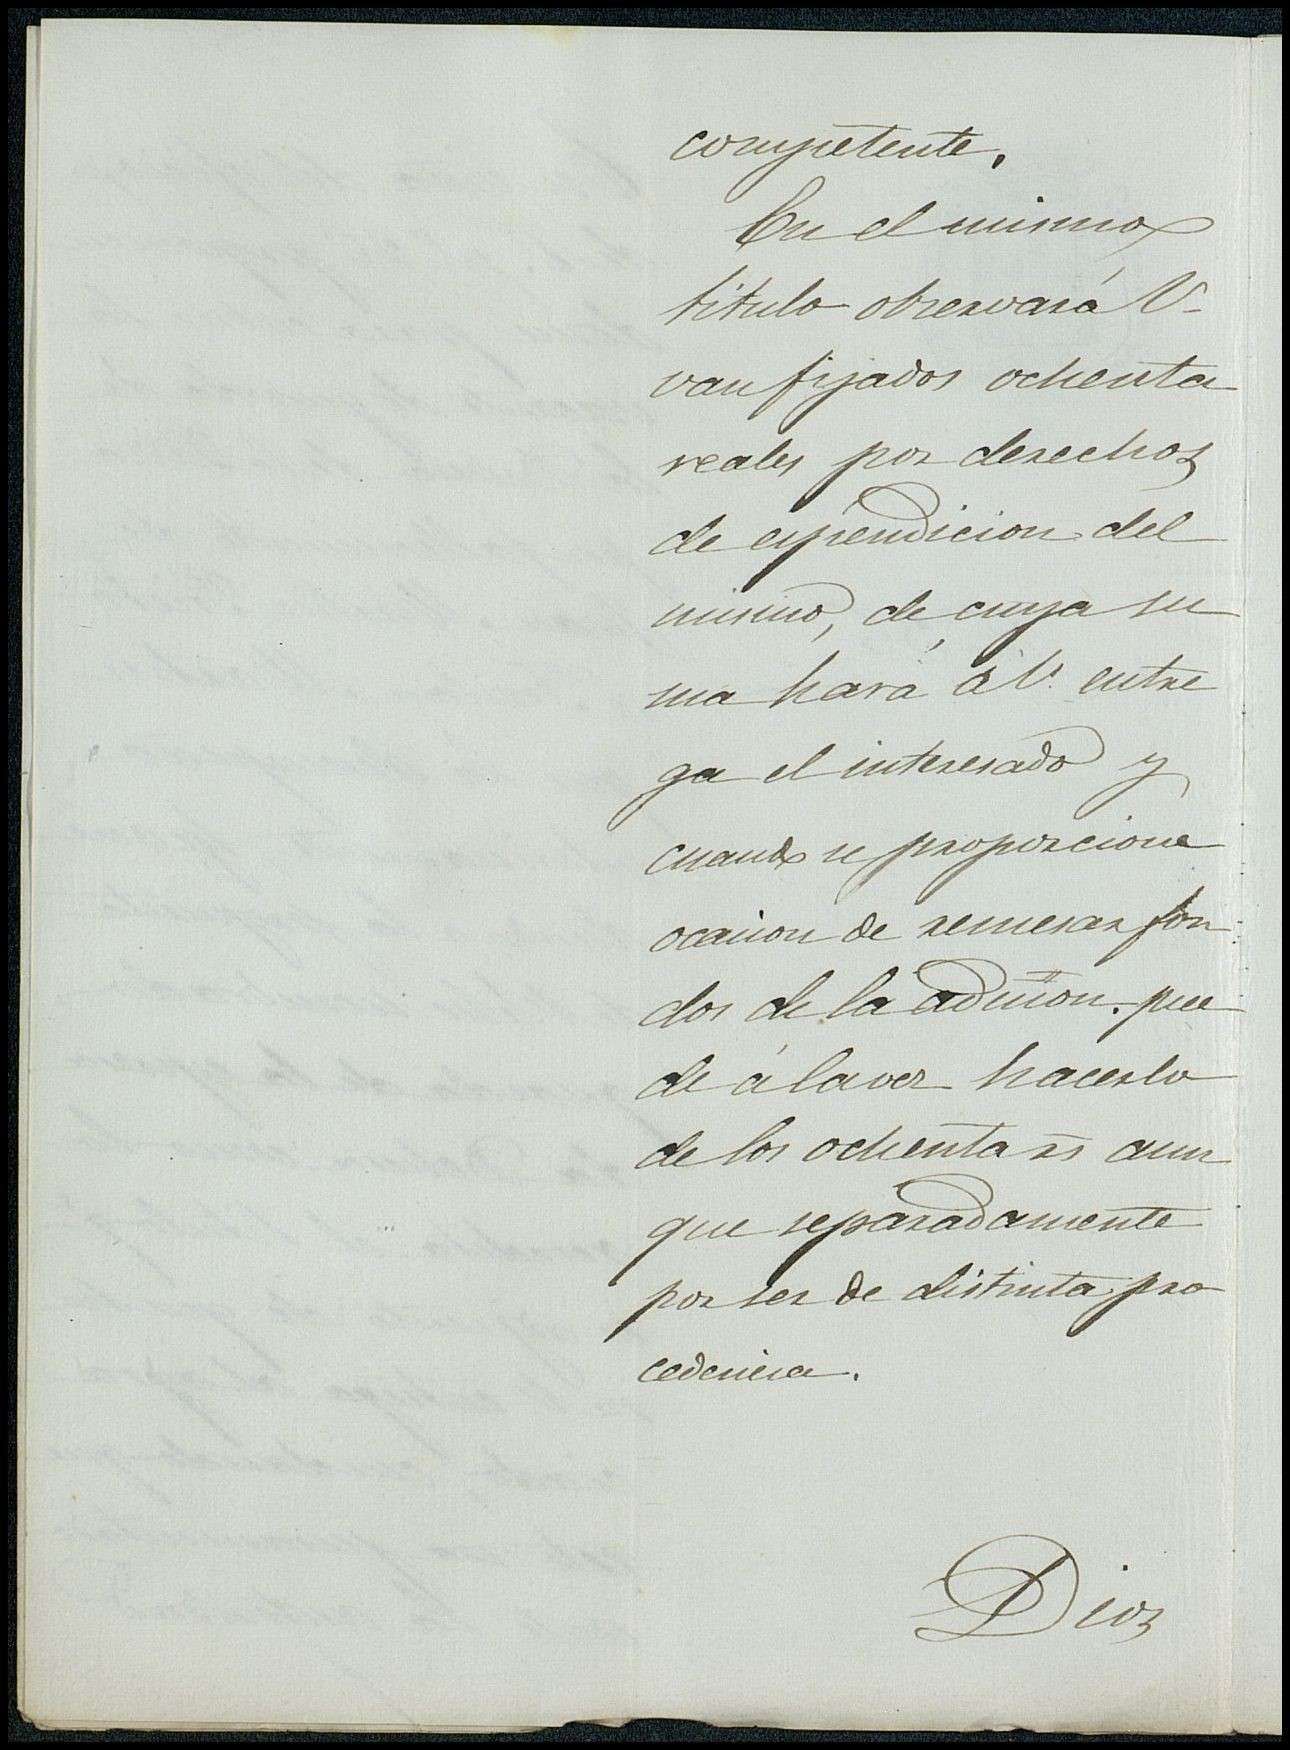 competente.
En el mismo
título observará V.
van fijados ochenta
reales por derechos
de espendicion del
mismo, de cuya su
ma hará á V. entre
ga el interesado y
cuando se proporcione
ocasion de remesar fon
dos de la admon. pue
de á la vez hacerlo
de los ochenta rs aun
que separadamente
por ser de distinta pro
cedencia.
Dios